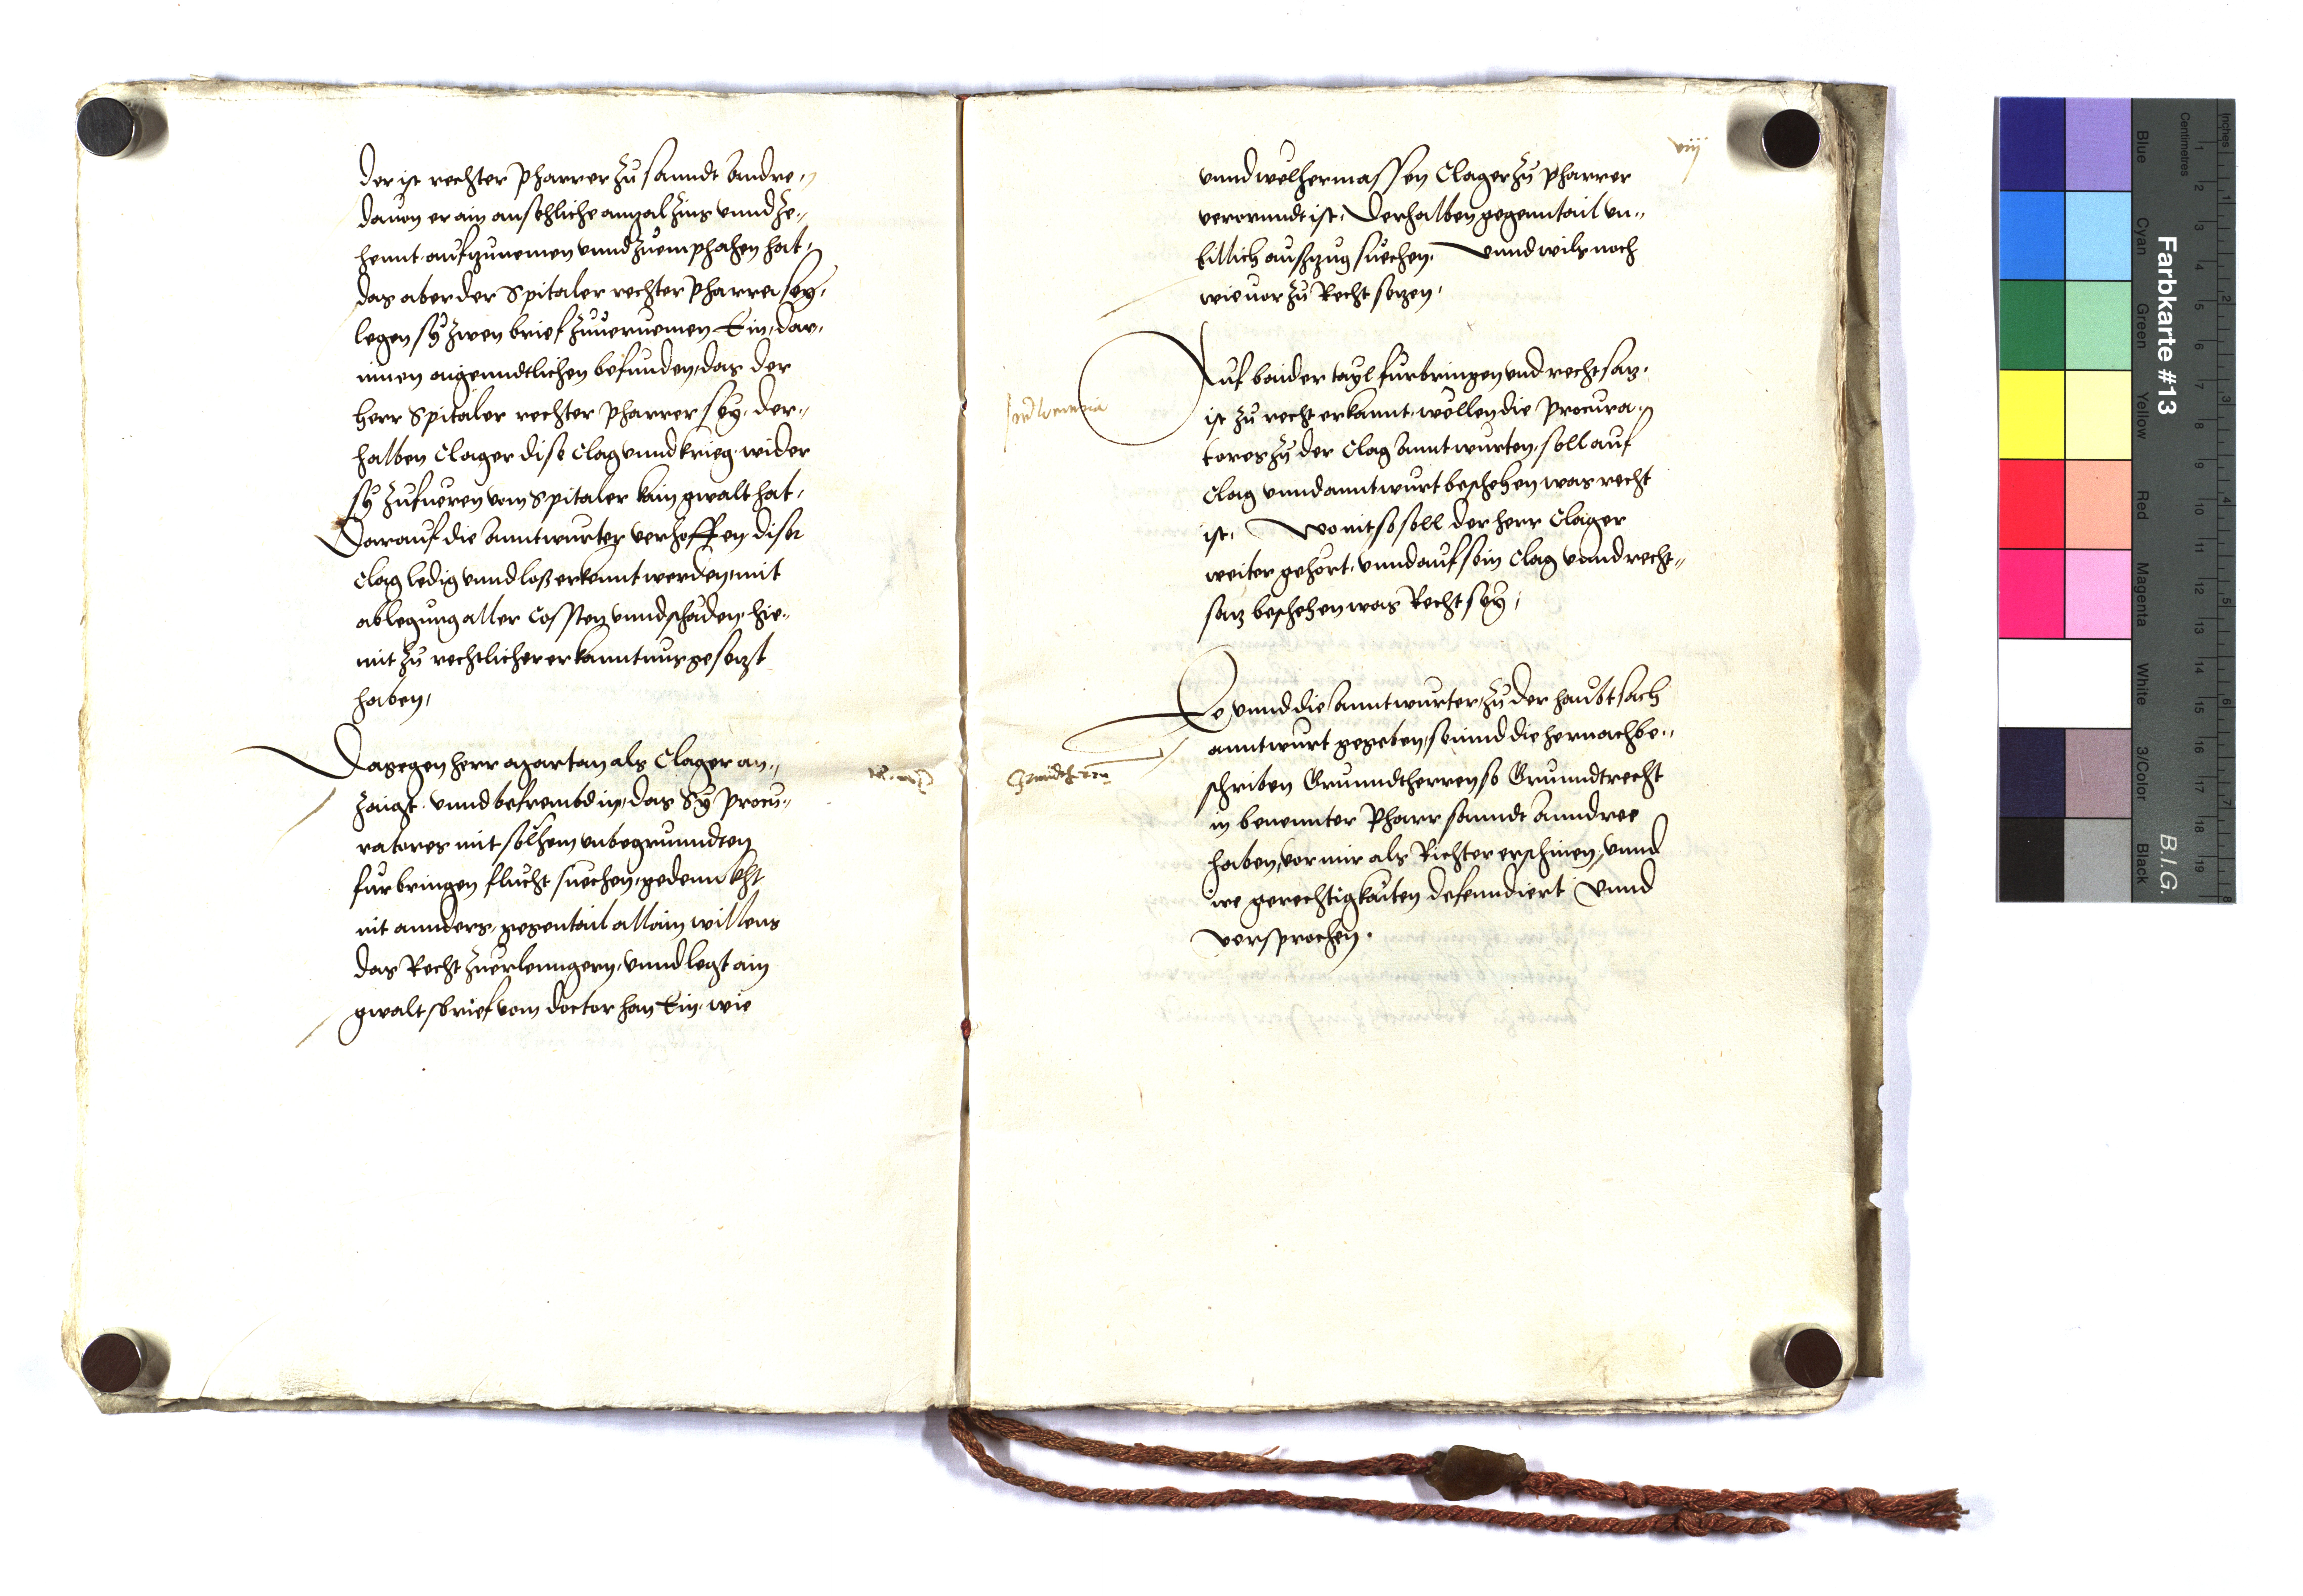 der ist rechter Pharrer zu sanndt Anndre,,
dauon er ain ansehliche anzal zins vnnd ze,,
hennt aufzunemen vnnd zuemphahen hat,
das aber der Spitaler rechter Pharrer sey,
legen sy zwen brief zuuernemen Ein, dar,,
innen aigenndtlichen befunden, das der
herr Spitaler rechter Pharrer sey, der,,
halben Clager dise Clag vnnd krieg, wider
sy zufueren vom Spitaler kain gwalt hat,
Darauf die Anntwurter verhoffen diser
Clag ledig vnnd loß erkennt werden, mit
ablegung aller Cossten vnnd schäden, hie,,
mit zu rechtlicher erkanntnus gesetzt
haben,
Dagegen herr als Clager an,,
zaigt, vnnd befrembd in, das Sy Procu,,
ratores mit sölhem vnbegrunndten
furbringen flucht suechen, gedennckht
nit annders, gegentail allain willens
das Recht zuerlenngern, vnnd legt ain
gwaltsbrief vom doctor han Ein, wie
viij
vnnd welhermassen Clager zu Pharrer
verornndt ist, Derhalben gegenntail vn,,
billich auszzug suechen, Vnnd wils noch
wie uor zu Recht setzen,
Auf baider tayl furbringen vnd rechtsatz,
ist zu recht erkannt, wellen die Procura,,
tores zu der Clag Anntwurten, soll auf
Clag vnnd anntwurt beschehen was recht
ist, Wo nit so soll der herr Clager
weiter gehört, vnnd auf sein Clag vnnd recht,,
satz beschehen was Recht sey,
Grundtherrn
Ee, vnnd die Anntwurter, zu der haubtsach
anntwurt gegeben, seinnd die hernachbe,,
schriben Grunndtherren so Grunndtrecht
in benennter Pharr sanndt Anndree
haben, vor mir als Richter erschinen, vnnd
ire gerechtigkaiten defenndiert Vnnd
versprochen.
Farbkarte #13
B.I.G.
Inches
Centimetres
Blue
Cyan
Green
Yellow
Red
Magenta
White
3/Color
Black